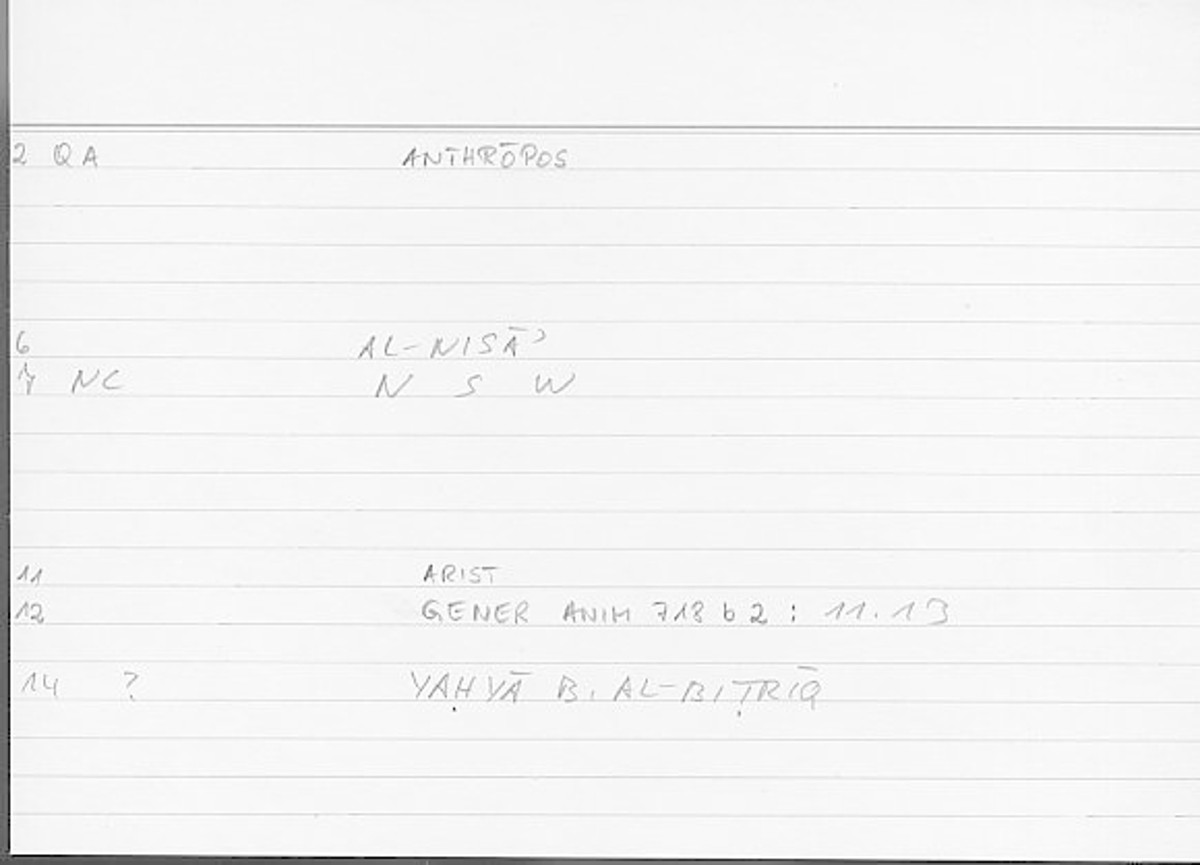 2 QA ANTHRŌPOS
6 AL-NISĀʾ
7 NC N S W
11 ARIST
12 GENER ANIM 718 b 2 : 11.13
14 ? YAḤYĀ B. AL-BIṬRĪQ